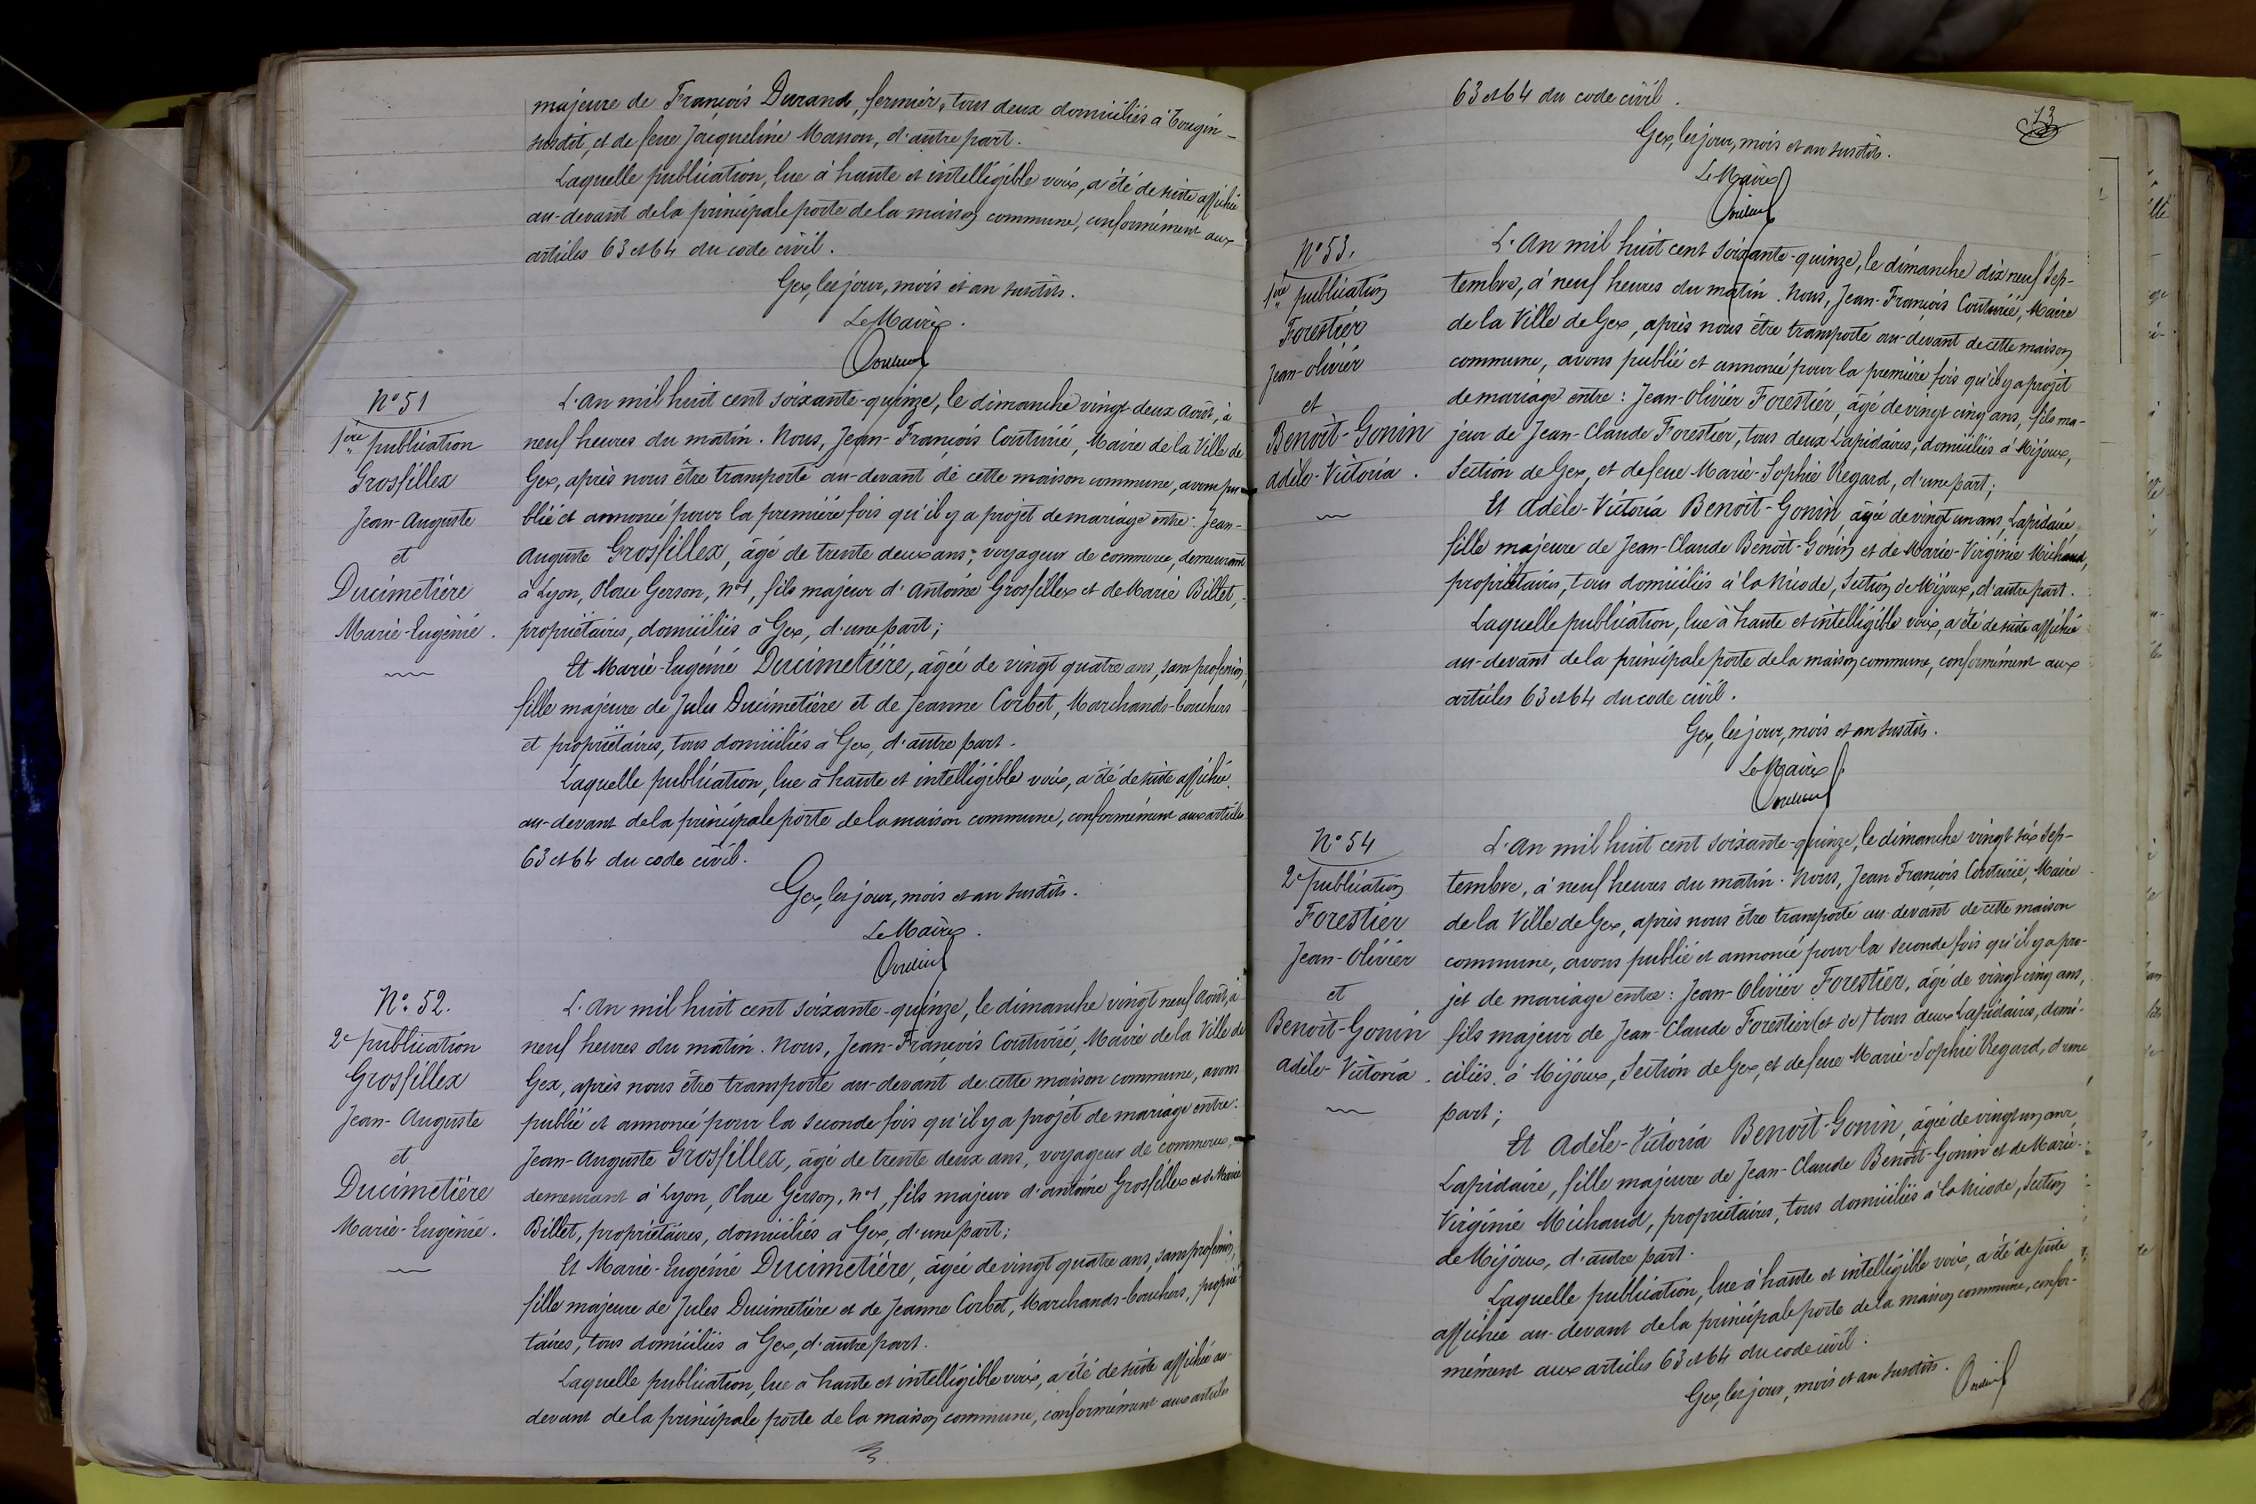 majeure de François Durand, fermier, tous deux domiciliés à Tougin-
susdit, et de feue Jacqueline Manon, d'autre part.
Laquelle publication, lue à haute et intelligible voix, a été de suite affichée
au-devant de la principale porte de la maison commune, conformément aux
articles 63 et 64 du code civil.
Gex, les jour, mois et an susdits.
Le Maire.
N° 51
1ère publication
Grosfillex
Jean-Auguste
et
Ducimetière
Marie-Eugénie.
L'An mil huit cent soixante-quinze, le dimanche vingt deux Août, à
neuf heures du matin. Nous, Jean-François Couturié, Maire de la Ville de
Gex, après nous être transporté au-devant de cette maison commune, avons pu-
blié et annoncé pour la première fois qu'il y a projet de mariage entre: Jean-
Auguste Grosfillex, âgé de trente deux ans, voyageur de commerce, demeurant
à Lyon, Place Gerson, n°1, fils majeur d'Antoine Grosfillex et de Marie Billet,
propriétaires, domiciliés à Gex, d'une part;
Et Marie-Eugénie Ducimetière, âgée de vingt quatre ans, sans profession,
fille majeure de Jules Ducimetière et de Jeanne Corbet, Marchands-bouchers
et propriétaires, tous domiciliés à Gex, d'autre part.
Laquelle publication, lue à haute et intelligible voix, a été de suite affichée
au-devant de la principale porte de la maison commune, conformément aux articles
63 et 64 du code civil.
Gex, les jour, mois et an susdits.
Le Maire.
N° 52.
2e publication
Grosfillex
Jean-Auguste
et
Ducimetière
Marie-Eugénie.
L'An mil huit cent soixante-quinze, le dimanche vingt neuf Août, à
neuf heures du matin. Nous, Jean-François Couturié, Maire de la Ville de
Gex, après nous être transporté au-devant de cette maison commune, avons
publié et annoncé pour la seconde fois qu'il y a projet de mariage entre:
Jean-Auguste Grosfillex, âgé de trente deux ans, voyageur de commerce,
demeurant à Lyon, Place Gerson, n°1, fils majeur d'Antoine Grosfillex et de Marie
Billet, propriétaires, domiciliés à Gex, d'une part;
Et Marie-Eugénie Ducimetière, âgée de vingt quatre ans, sans profession,
fille majeure de Jules Ducimetière et de Jeanne Corbet, Marchands-bouchers, proprié-
taires, tous domiciliés à Gex, d'autre part.
Laquelle publication, lue à haute et intelligible voix, a été de suite affichée au-
devant de la principale porte de la maison commune, conformément aux articles
13
63 et 64 du code civil.
Gex, les jour, mois et an susdits.
Le Maire
N° 53.
1ère publication
Forestier
Jean-Olivier
et
Benoît-Gonin
Adèle-Victoria.
L'An mil huit cent soixante-quinze, le dimanche dix neuf Sep-
tembre, à neuf heures du matin. Nous, Jean-François Couturié, Maire
de la Ville de Gex, après nous être transporté au-devant de cette maison
commune, avons publié et annoncé pour la première fois qu'il y a projet
de mariage entre: Jean-Olivier Forestier, âgé de vingt cinq ans, fils ma-
jeur de Jean-Claude Forestier, tous deux Lapidaires, domiciliés à Mijoux,
Section de Gex, et de feue Marie-Sophie Regard, d'une part;
Et Adèle-Victoria Benoît-Gonin, âgée de vingt un ans, Lapidaire,
fille majeure de Jean-Claude Benoît-Gonin et de Marie-Virginie Michaud,
propriétaires, tous domiciliés à la Nicode, Section de Mijoux, d'autre part.
Laquelle publication, lue à haute et intelligible voix, a été de suite affichée
au-devant de la principale porte de la maison commune, conformément aux
articles 63 et 64 du code civil.
Gex, les jour, mois et an susdits.
Le Maire
N° 54
2e publication
Forestier
Jean-Olivier
et
Benoît-Gonin
Adèle-Victoria.
L'An mil huit cent soixante-quinze, le dimanche vingt six Sep-
tembre, à neuf heures du matin. Nous, Jean François Couturié, Maire
de la Ville de Gex, après nous être transporté au-devant de cette maison
commune, avons publié et annoncé pour la seconde fois qu'il y a pro-
jet de mariage entre: Jean-Olivier Forestier, âgé de vingt cinq ans,
fils majeur de Jean-Claude Forestier (et de) tous deux Lapidaires, domi-
ciliés à Mijoux, Section de Gex, et de feue Marie-Sophie Regard, d'une
part;
Et Adèle-Victoria Benoît-Gonin, âgée de vingt un ans,
Lapidaire, fille majeure de Jean-Claude Benoît-Gonin et de Marie-
Virginie Michaud, propriétaires, tous domiciliés à la Nicode, Section
de Mijoux, d'autre part.
Laquelle publication, lue à haute et intelligible voix, a été de suite
affichée au-devant de la principale porte de la maison commune, confor-
mément aux articles 63 et 64 du code civil.
Gex, les jour, mois et an susdits.